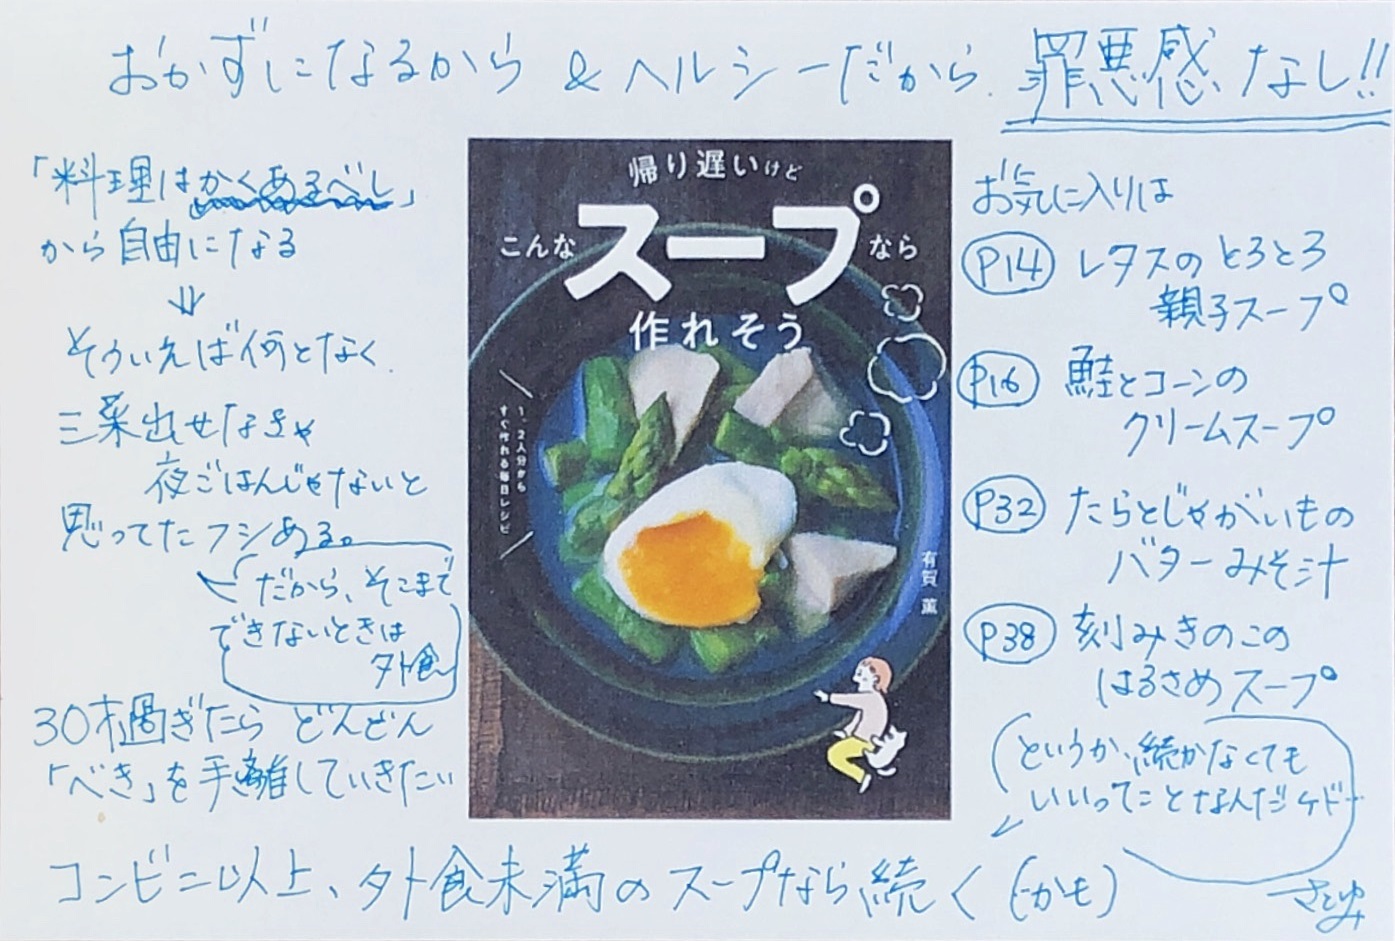 おかずになるから & ヘルシーだから 罪悪感なし!!
「料理はかくあるべし」
から自由になる
⇓
そういえば何となく
三菜出せなきゃ
夜ごはんじゃないと
思ってたフシある。
だから、そこまで
できないときは
外食
30才過ぎたら どんどん
「べき」を手離していきたい
帰り遅いけど
こんなスープなら
作れそう
1、2人分から
すぐ作れる毎日レシピ
有賀 薫
お気に入りは
P14 レタスのとろとろ
親子スープ
P16 鮭とコーンの
クリームスープ
P32 たらとじゃがいもの
バターみそ汁
P38 刻みきのこの
はるさめスープ
というか、続かなくても
いいってことなんだケドー
コンビニ以上、外食未満のスープなら続く(かも)
さとゆみ